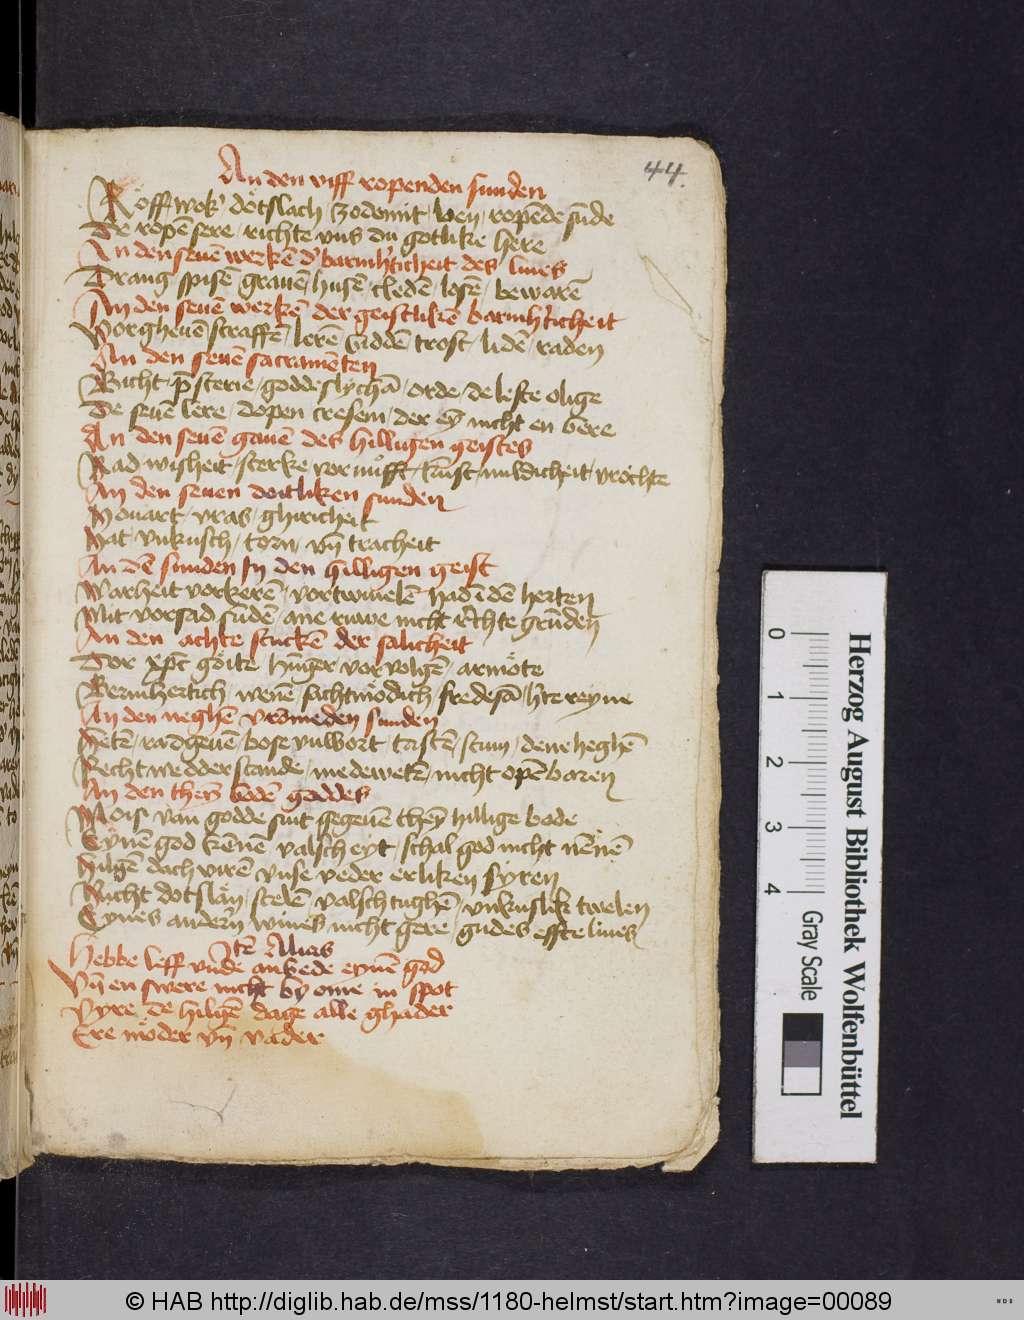 44.
An den viff ropenden sunden
Roff wok' dötslach Zodomit ven ropēde sūde
De ropē sere richte vns du gotlike here
An den seuē werkē d' barmh'ticheit des liues
Drang spisē grauē husē cledē losē bewarē
An den seuē werkē der geistlikē barmh'ticheit
Vorgheuē straffē lerē bidden trost lidē raden
An den seuē sacramēten
Bicht p̄sterie goddes lychā orde de leste olige
De seuē lere dopen cresem der eȳ nicht en bere
An den seuē gauē des hilligen geistes
Rad wisheit sterke vornufft kunst mildicheit vrochte
An den seuen doitliken sunden
Houart vras ghiricheit
Hat vnkusch torn vn̄ tracheit
An dē sunden in den hilligen geist
Warheit vorkerē vortwiuelē had ī dē herten
Mit vorsad sundē ane ruwe nicht rechte grūden
An den achte stuckē der salicheit
Dor xp̄c hunger vor volgē armöte
Bermhertich wenē sachtmodich fredesā h'te reyne
An den neghē vromeden sunden
Heten radgeuē bose vulwort stum
Recht wedderstande medeweten nicht opēbaren
An den theȳ bodē goddes
Mois van godde sint gegeuē theȳ hillige bode
Eynē god kēnē valsch eyt schal god nicht nēnē
Hilgē dach virē vnse veder erliken syren
Nicht dotslan stelē valsch tughē vnkuslik twelen
Eynes andern wiues nicht gere gudes effte liues
Itē Alias
Hebbe leff vnde anbede eynē god
Vn̄ en swere nicht by ome in spot
Vyre de hilgē dage alle ghader
Ere moder vn̄ vader
Herzog August Bibliothek Wolfenbüttel
0 1 2 3 4
Gray Scale
© HAB http://diglib.hab.de/mss/1180-helmst/start.htm?image=00089